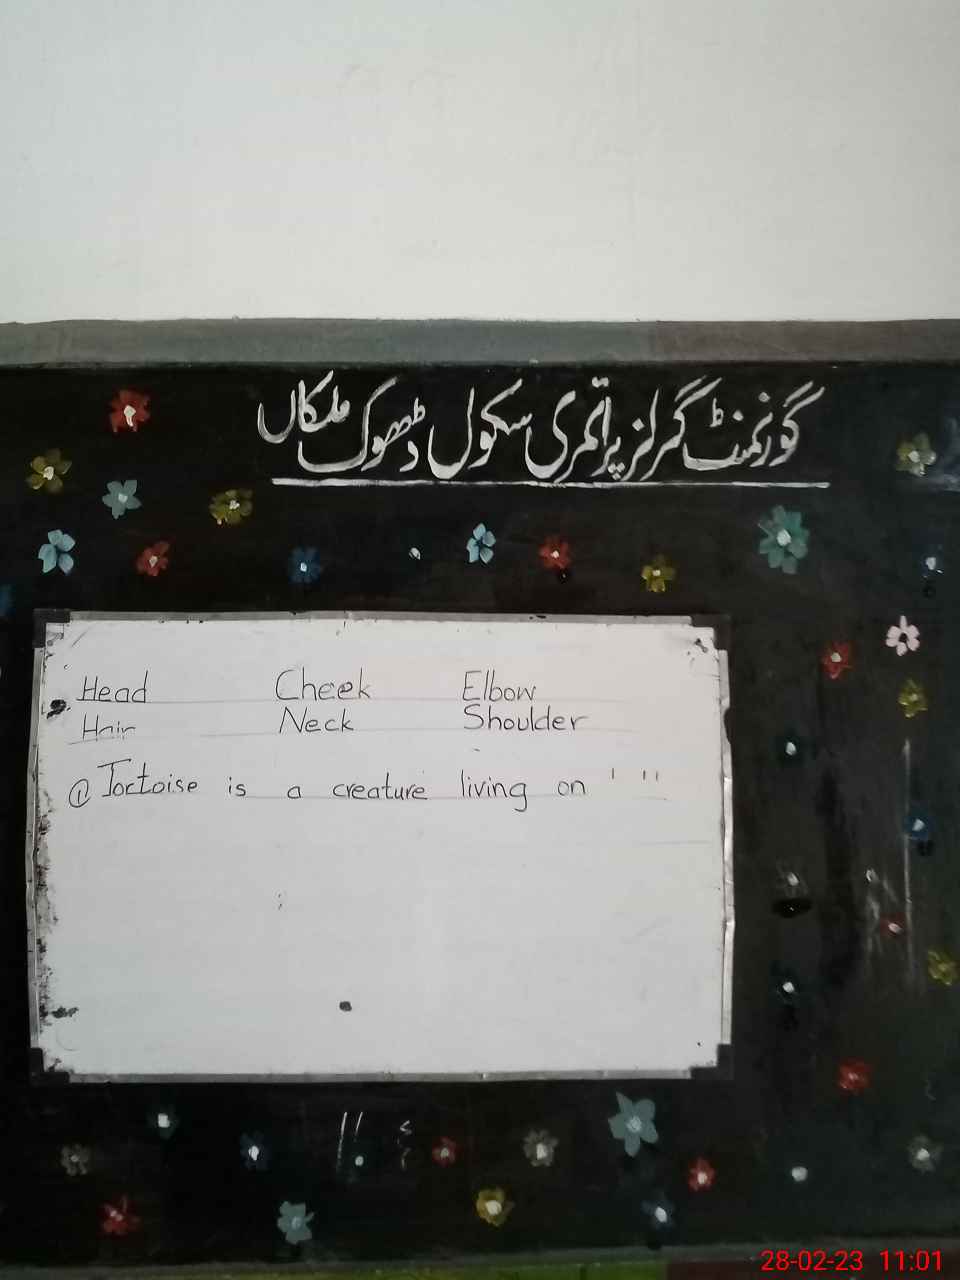 گورنمنٹ گرلز پرائمری سکول ڈھوک ملکاں
Head Cheek Elbow
Hair Neck Shoulder
① Toctoise is a creature living on ' ''
28-02-23 11:01